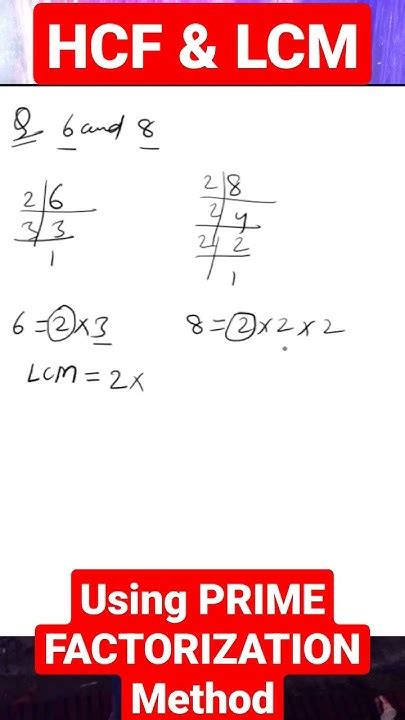 HCF & LCM
Q 6 and 8
2 6
3 3
1
2 8
2 4
2 2
1
6 = 2 × 3
8 = 2 × 2 × 2
LCM = 2 ×
Using PRIME
FACTORIZATION
Method